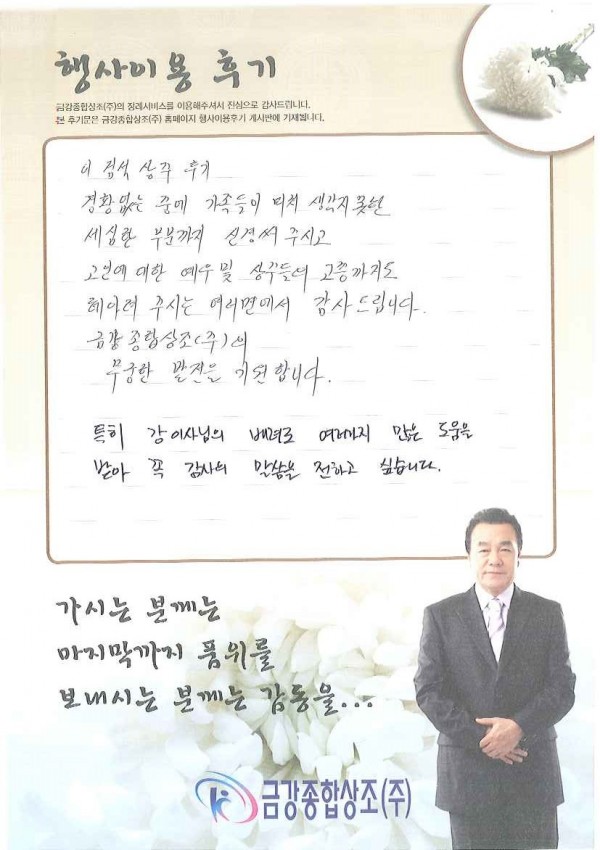 행사이용 후기
금강종합상조(주)의 장례서비스를 이용해주셔서 진심으로 감사드립니다.
본 후기문은 금강종합상조(주) 홈페이지 행사이용후기 게시판에 기재됩니다.
상주 후기
경황없는 중에 가족들이 미처 생각지 못한
세심한 부분까지 신경써 주시고
고인에 대한 예우 및 상주들의 고충까지도
헤아려 주시는 여러면에서 감사드립니다.
금강종합상조(주)의
무궁한 발전을 기원합니다.
특히 강이사님의 배려로 여러가지 많은 도움을
받아 꼭 감사의 말씀을 전하고 싶습니다.
가시는 분께는
마지막까지 품위를
보내시는 분께는 감동을...
금강종합상조(주)